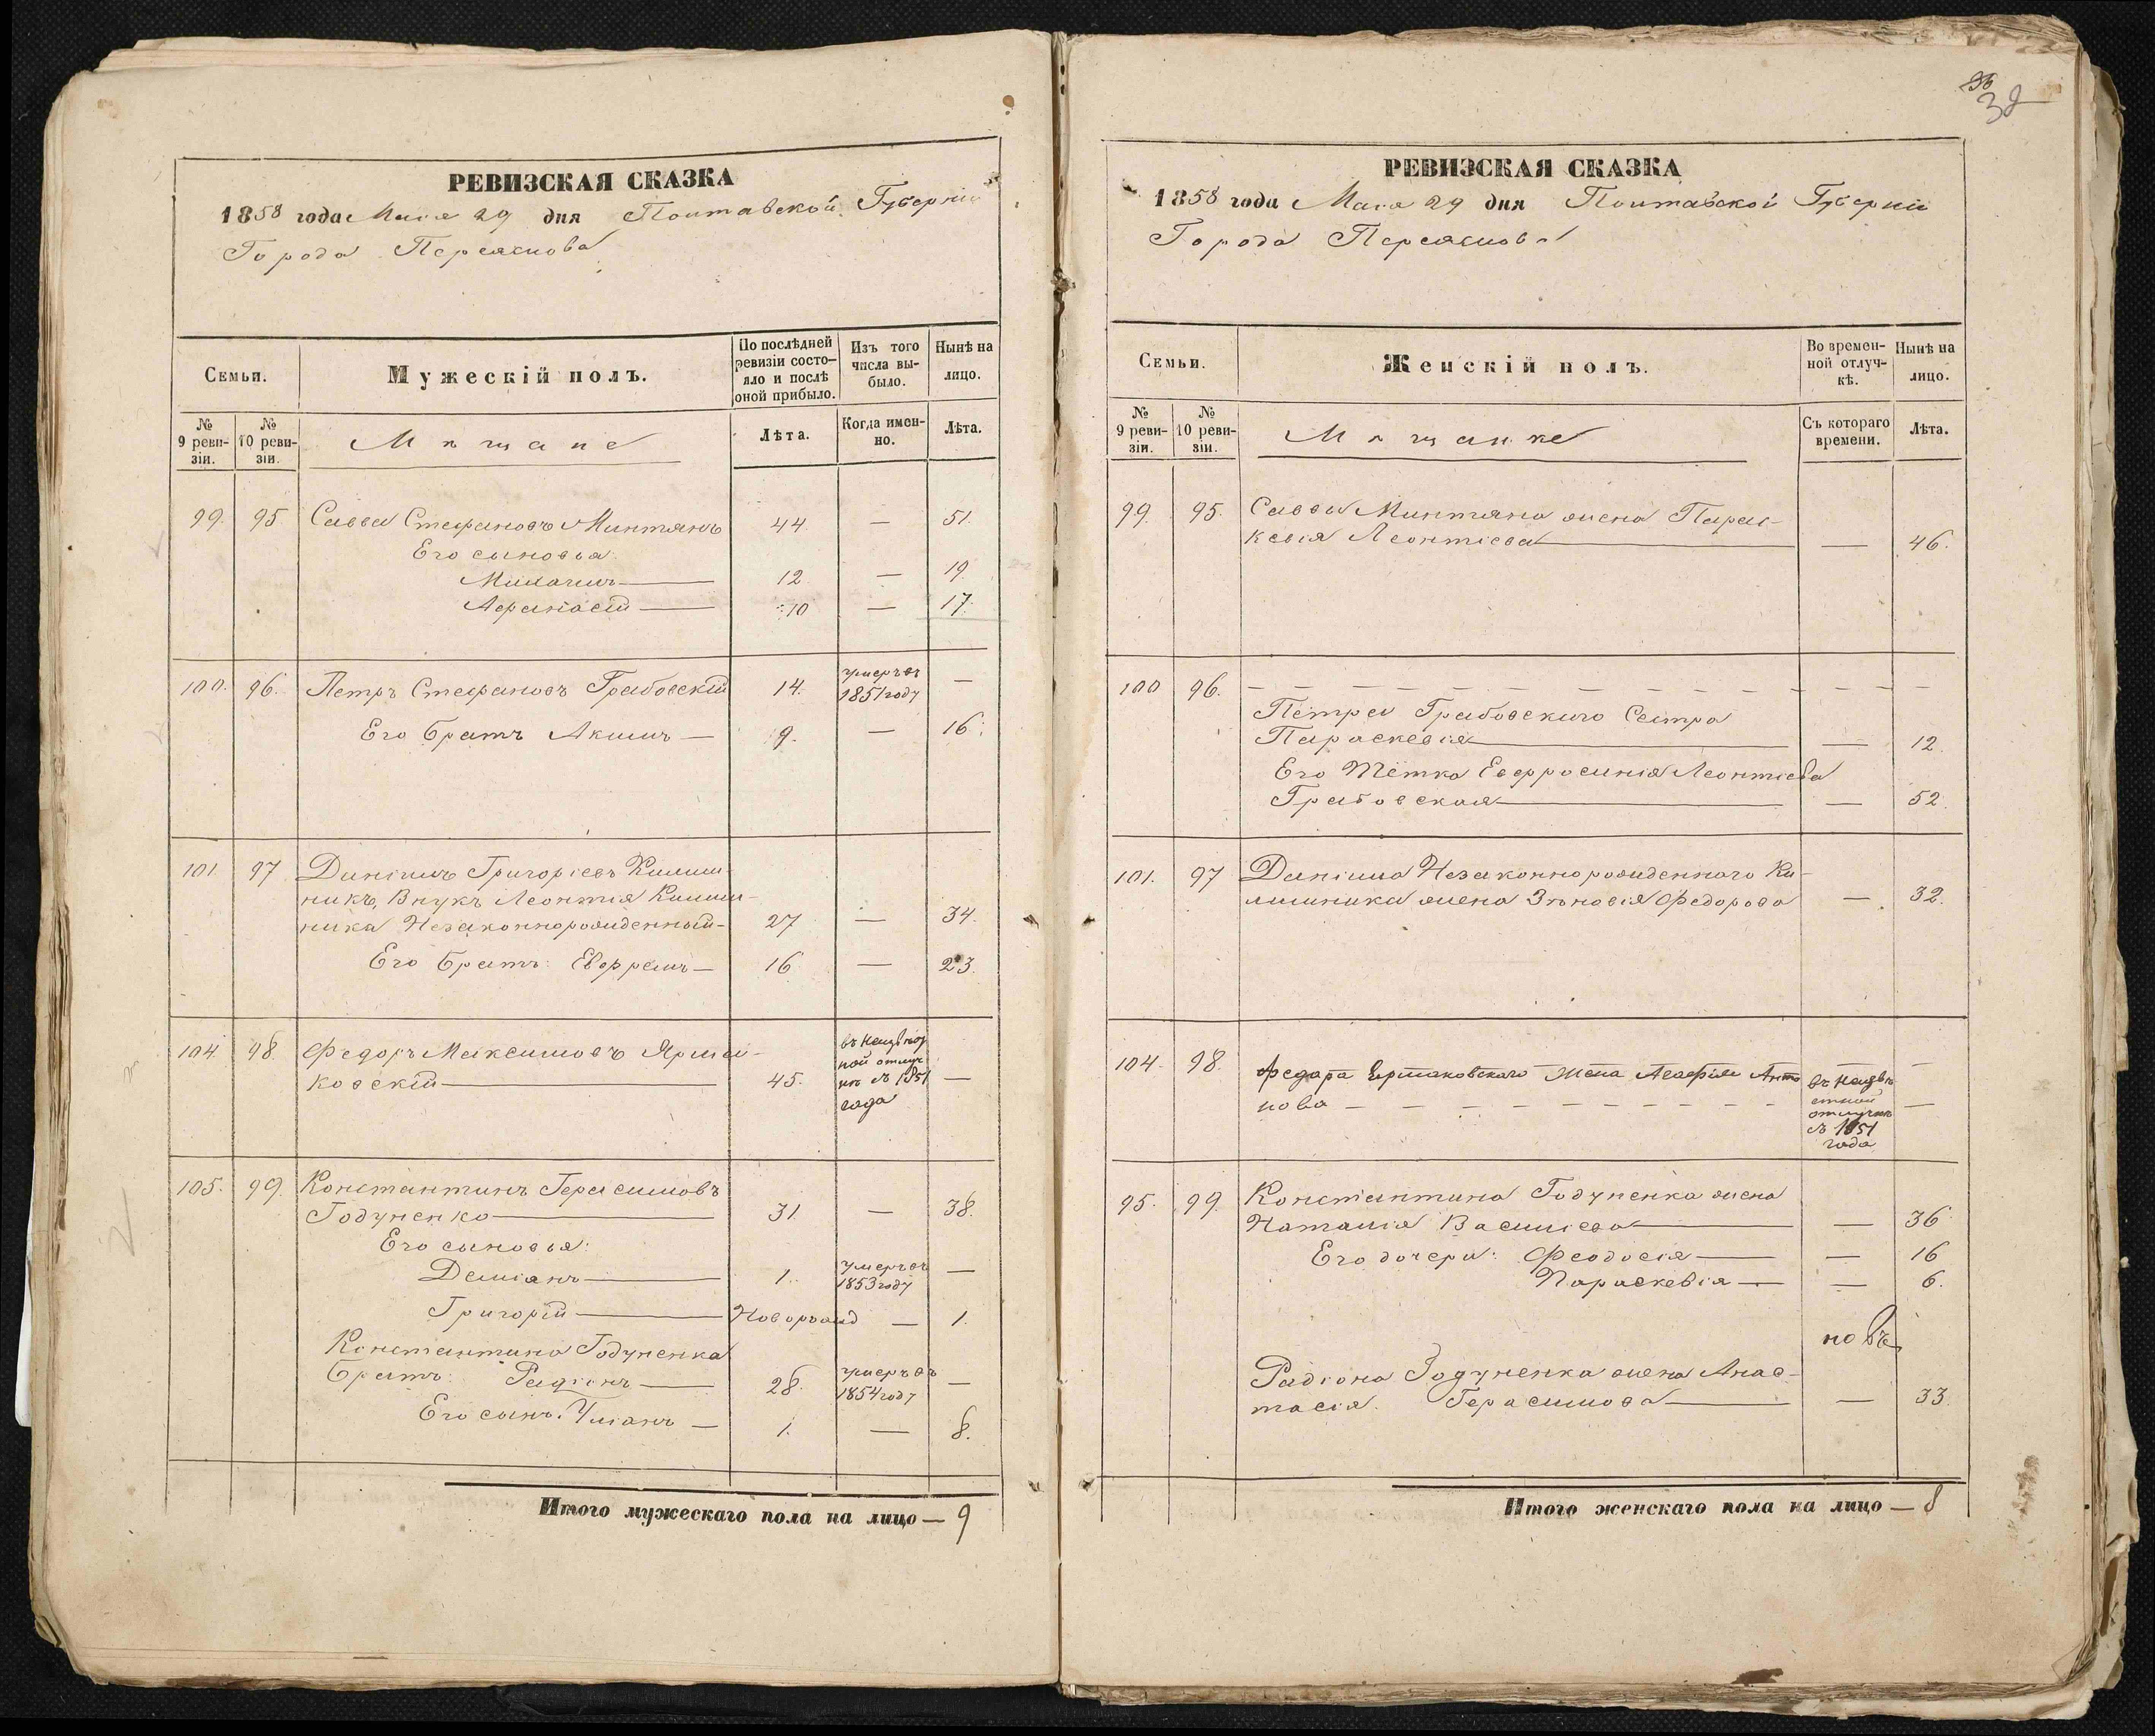 РЕВИЗСКАЯ СКАЗКА
1858 года Мая 29 дня Полтавской Губерніи
Города Переяслова
Семьи.
Мужескій полъ.
По послѣдней ревизіи состо-яло и послѣ оной прибыло.
Изъ того числа вы-было.
Нынѣ на лицо.
№ 9 реви-зіи.
№ 10 реви-зіи.
Мѣщане
Лѣта.
Когда имен-но.
Лѣта.
99. 95 Савва Стефановъ Минтянъ 44 — 51.
Его сыновья:
12 — 19
Афанасій — 10 — 17.
100. 96. Петръ Стефановъ Грабовскій 14. умеръ въ 1851 году —
Его братъ Акимъ — 9. — 16.
101 97 Даніилъ Григоріевъ Калаш-
никъ, Внукъ Леонтія
ника Незаконнорожденный — 27 — 34.
Его братъ Евфремъ — 16 — 23.
104 98. Федоръ Максимовъ
ковскій — 45. въ неизвѣстной отлучкѣ съ 1851 года —
105. 99. Константинъ Герасимовъ
Годуненко — 31 — 38.
Его сыновья:
Деміанъ — 1. умеръ въ 1853 году —
Григорій — Новорожд — 1.
Константина Годуненка
братъ: Радіонъ — 28. умеръ въ 1854 году —
Его сынъ: Уліанъ — 1. — 8.
Итого мужескаго пола на лицо — 9
38
РЕВИЗСКАЯ СКАЗКА
1858 года Мая 29 дня Полтавской Губерніи
Города Переяслова
Семьи.
Женскій полъ.
Во времен-ной отлуч-кѣ.
Нынѣ на лицо.
№ 9 реви-зіи.
№ 10 реви-зіи.
Мѣщанке
Съ котораго времени.
Лѣта.
99. 95. Саввы Минтяна жена Парас-
кевія Леонтіева — — 46.
100 96. — — — — — — — — — — — —
Петра Грабовскаго Сестра
Параскевія — — 12.
Его Тётка Евфросинія Леонтіева
Грабовская — — 52.
101. 97 Даніила Незаконнорожденнаго Ка-
лашника жена Зѣновія Федорова — 32.
104. 98. Федара Ермаковскаго Жена Агафія Анто
нова — — — — — — — — — въ неизвѣстной отлучкѣ съ 1851 года —
95. 99. Константина Годуненка жена
Наталія Василіева — — 36
Его дочери: Феодосія — — 16
Параскевія — — 6.
Радіона Годуненка жена Анас-
тасія Герасимова — — 33.
Итого женскаго пола на лицо — 8